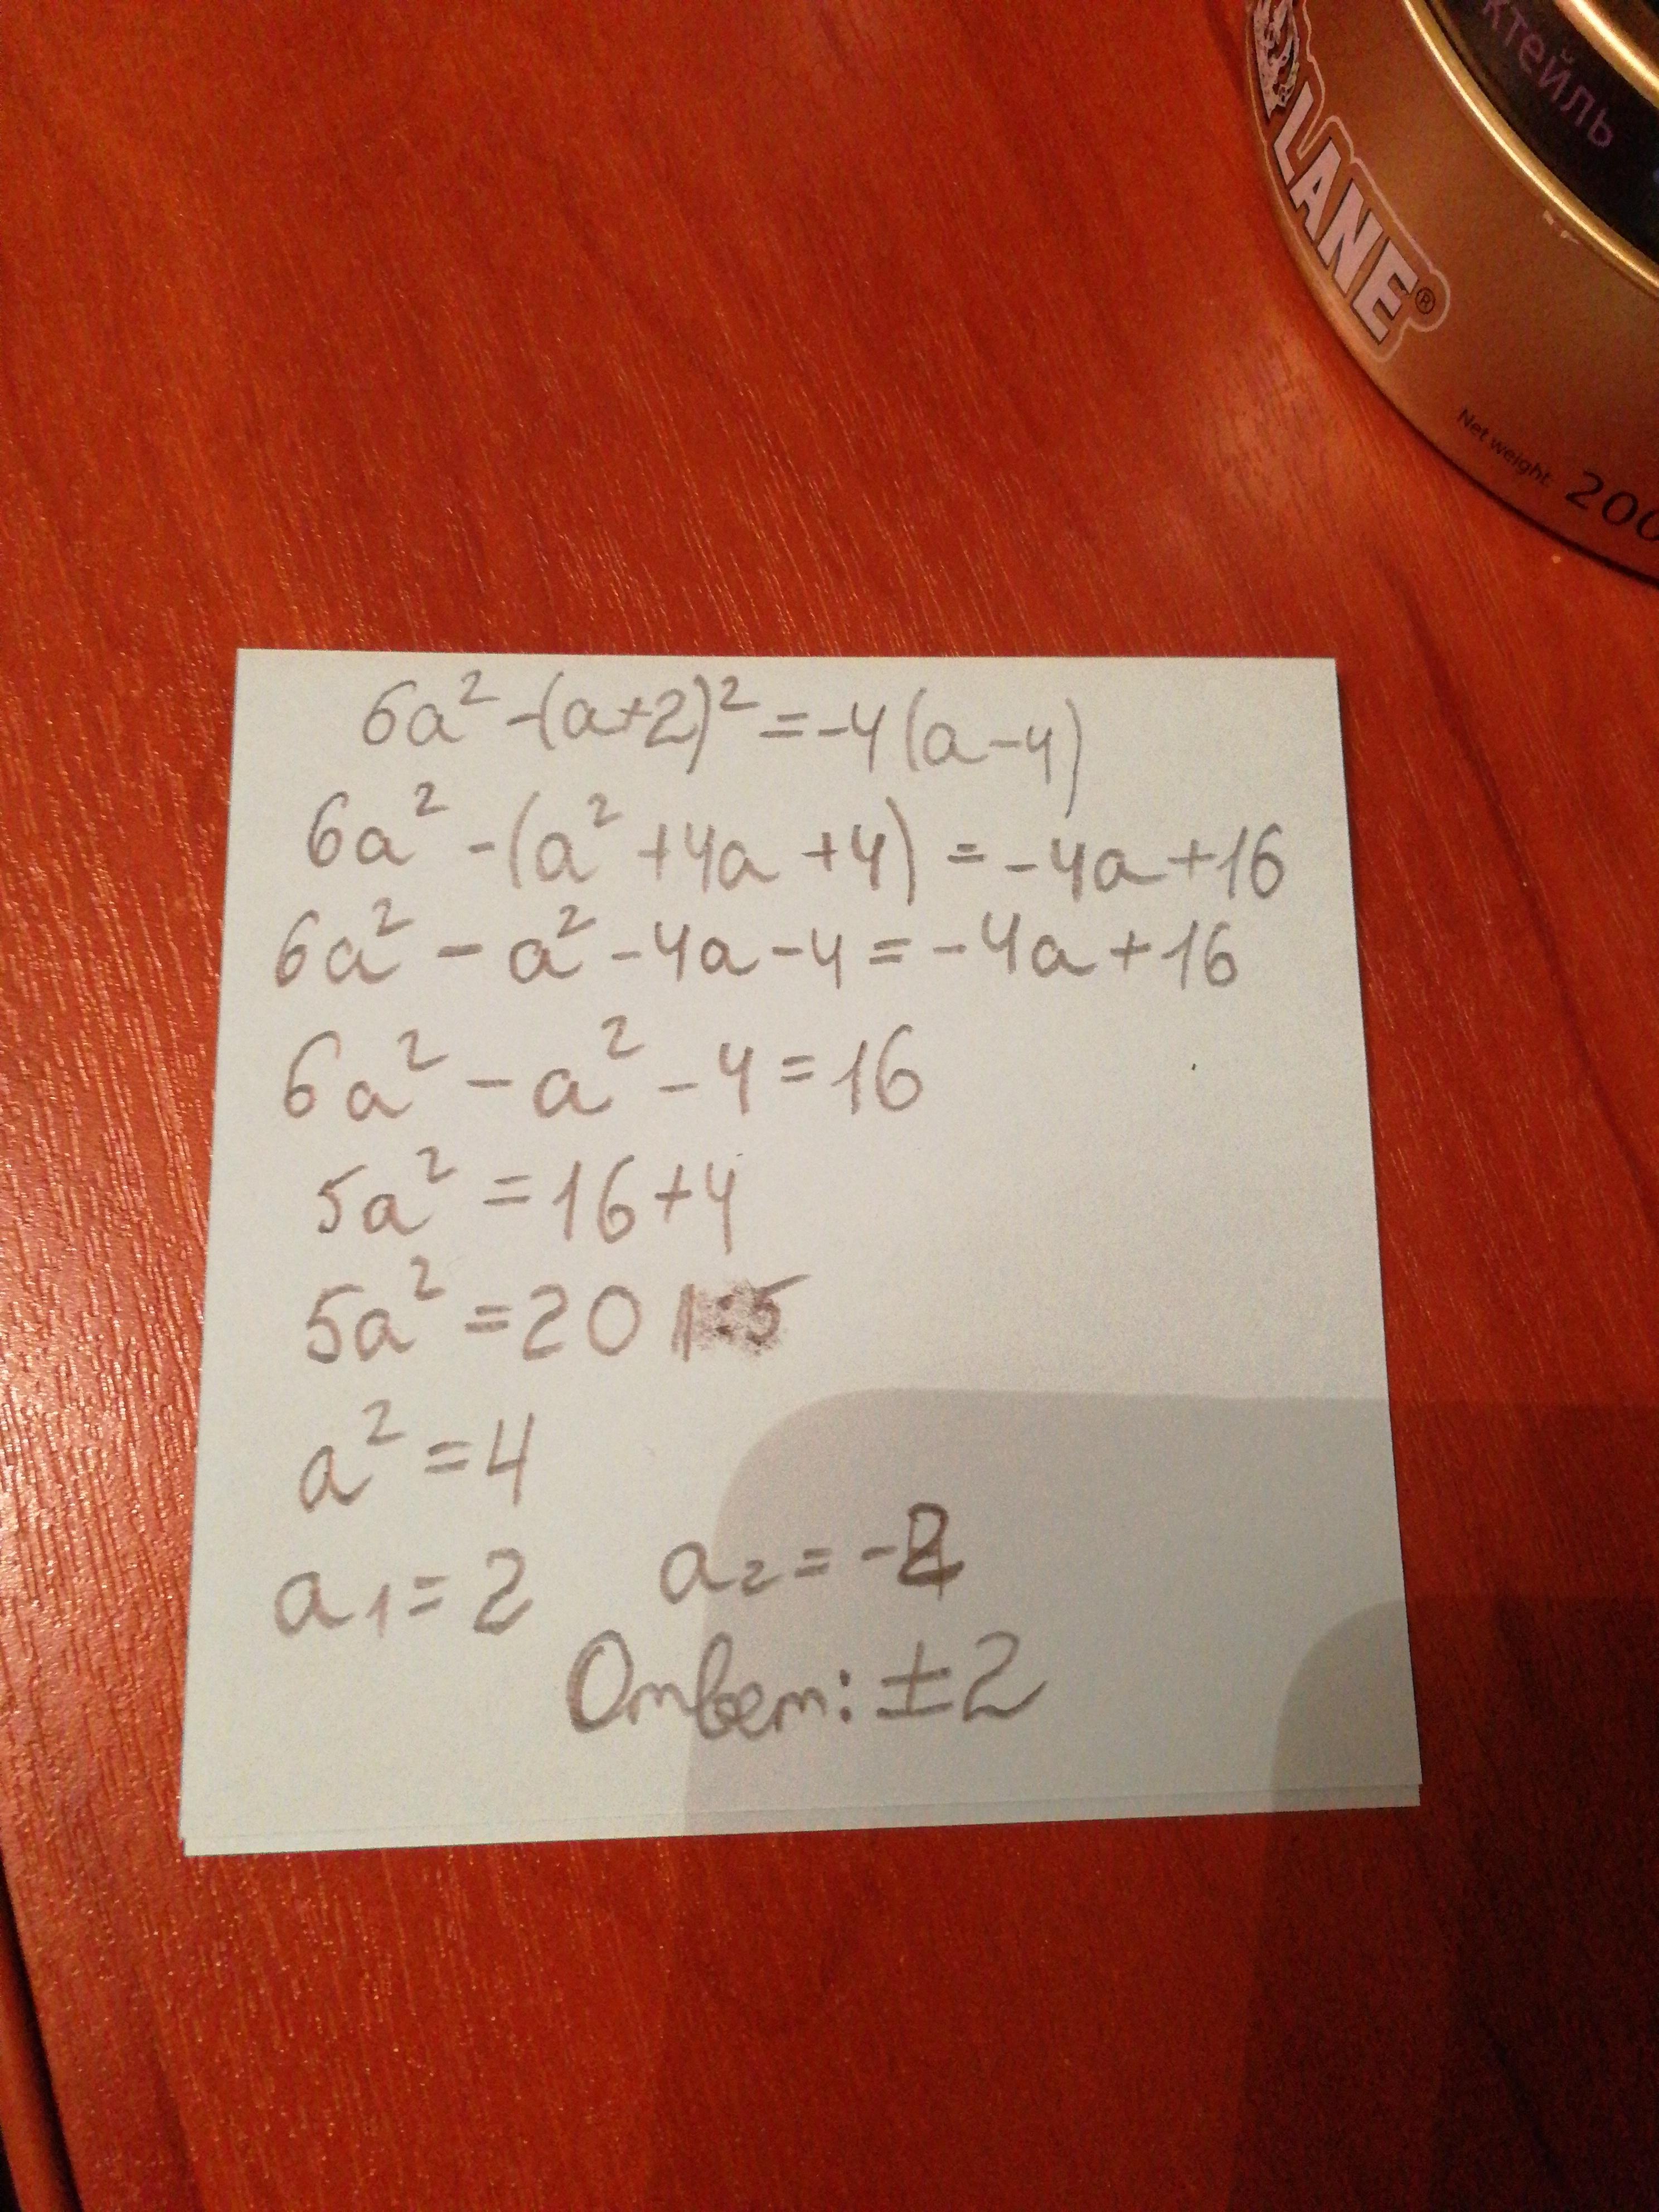 ктейль
LANE®
Net weight: 200
6a² -(a+2)² = -4(a-4)
6a² -(a² +4a +4) = -4a +16
6a² - a² - 4a - 4 = -4a + 16
6a² - a² - 4 = 16
5a² = 16+4
5a² = 20 |:5
a² = 4
a₁ = 2 a₂ = -2
Ответ: ±2